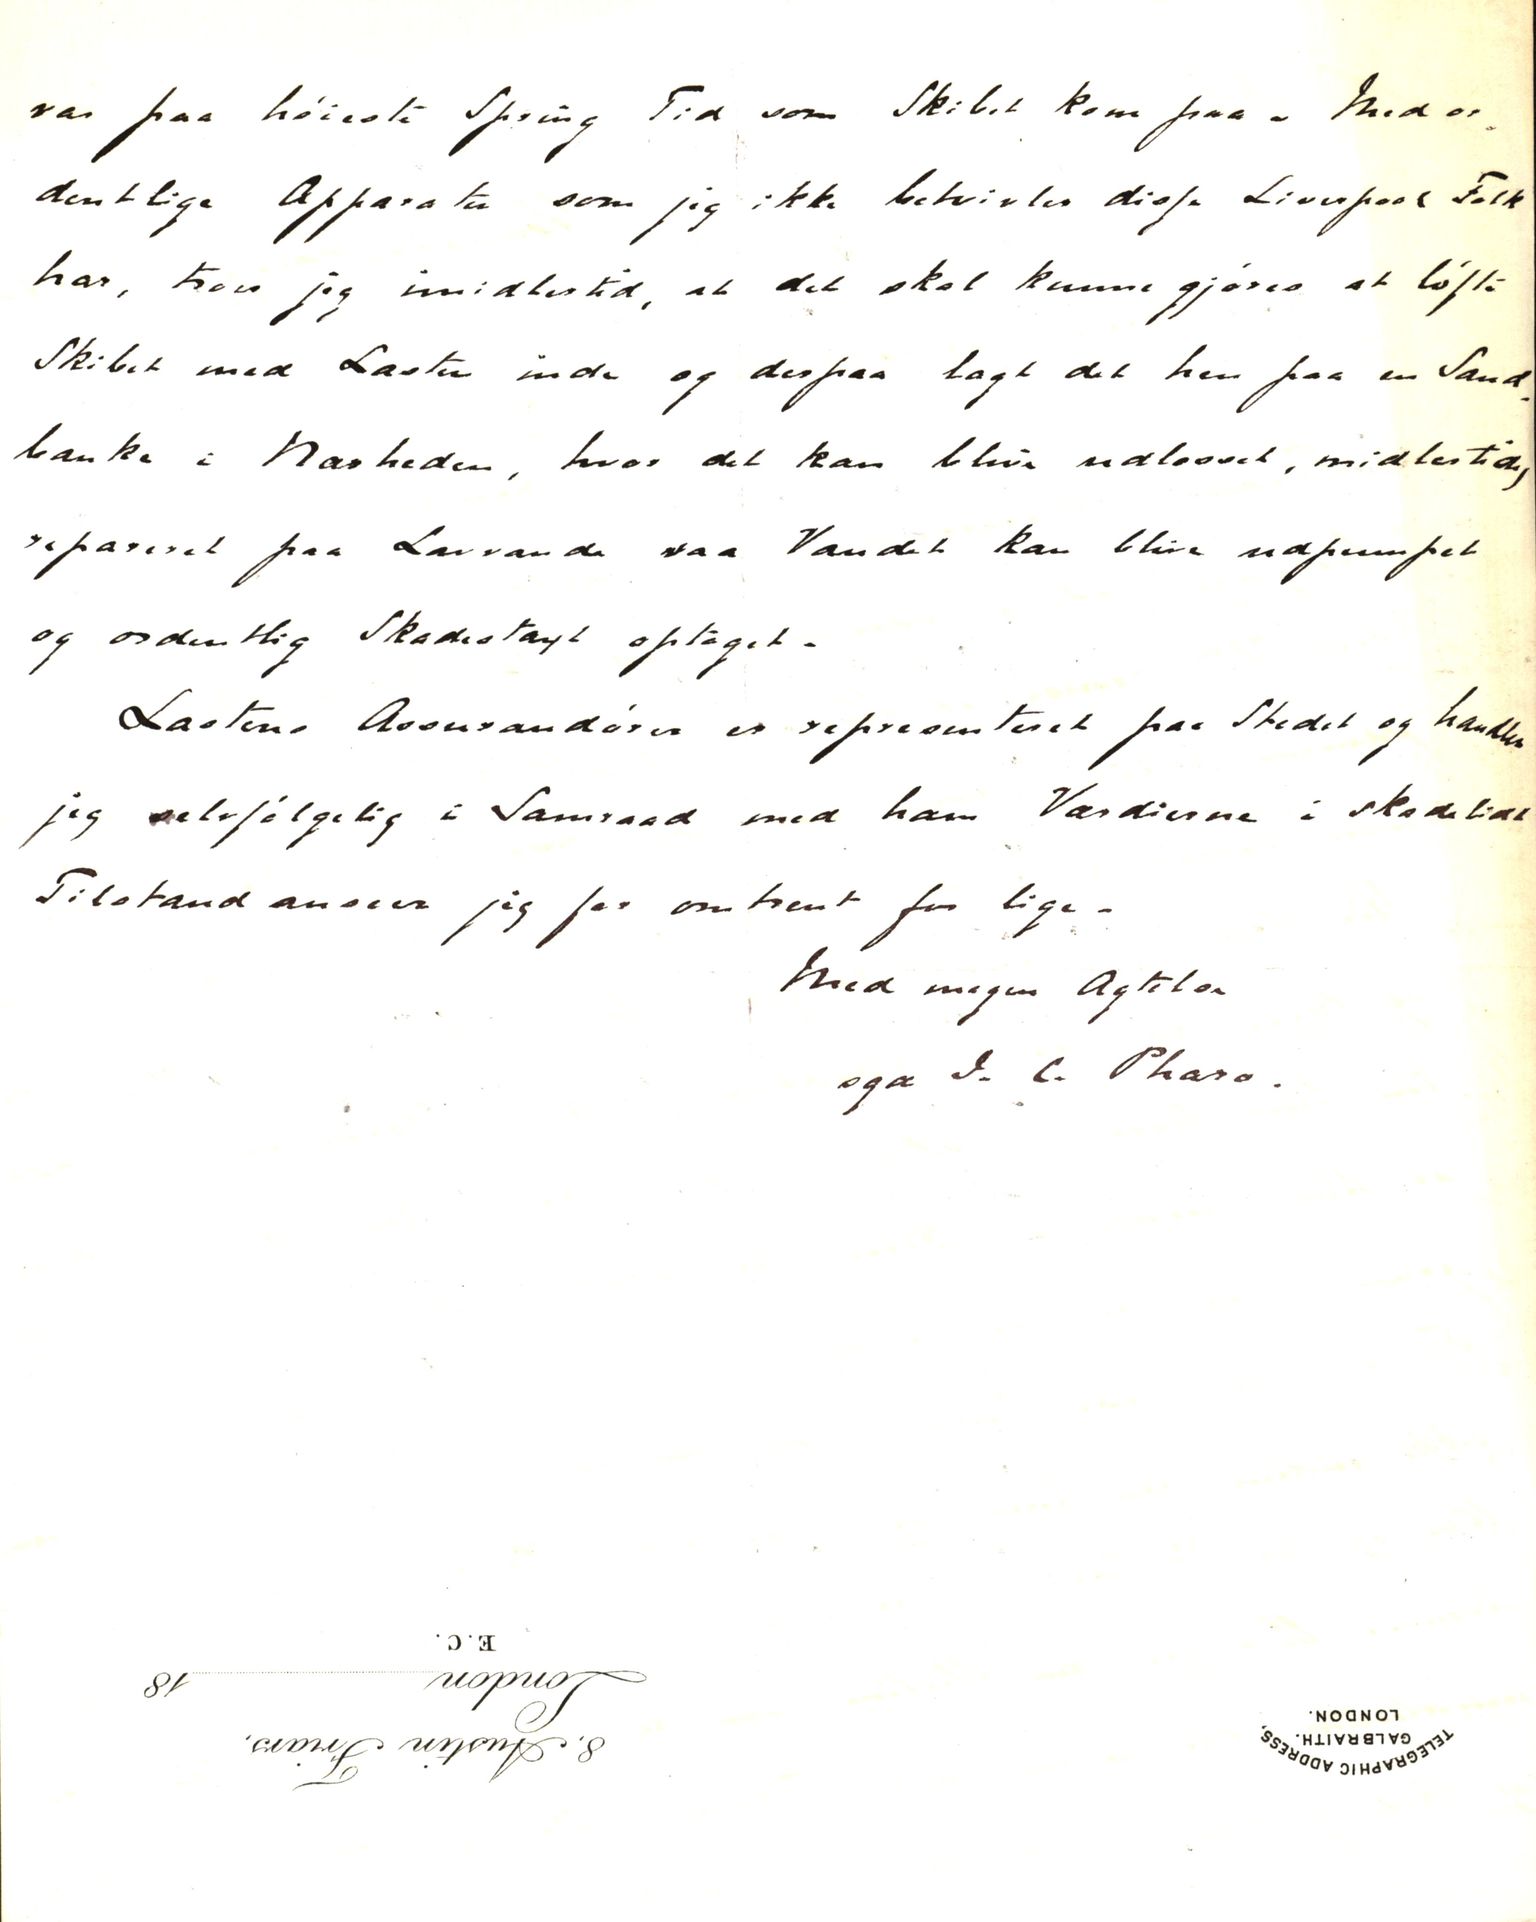 var paa höieste Spring Tid som Skibet kom paa - Med or-
dentlige Apparater som jeg ikke betvivler disse Liverpool Folk
har, troer jeg imidlertid, at det skal kunne gjöres at löfte
Skibet med Lasten inde og derpaa lagt det hen paa en Sand-
banke i Nærheden, hvor det kan blive udlosset, midlertidig
repareret paa Lavvande saa Vandet kan blive udpumpet
og ordentlig Skadestaxt optaget -
Lastens Assurandörer er representeret paa Stedet og handler
jeg selvfölgelig i Samraad med ham Værdierne i skadelidt
Tilstand anseer jeg for omtrent for lige -
Med megen Agtelse
sgd J. C. Pharo.
TELEGRAPHIC ADDRESS,
GALBRAITH.
LONDON.
8, Austin Friars,
London 18
E.C.